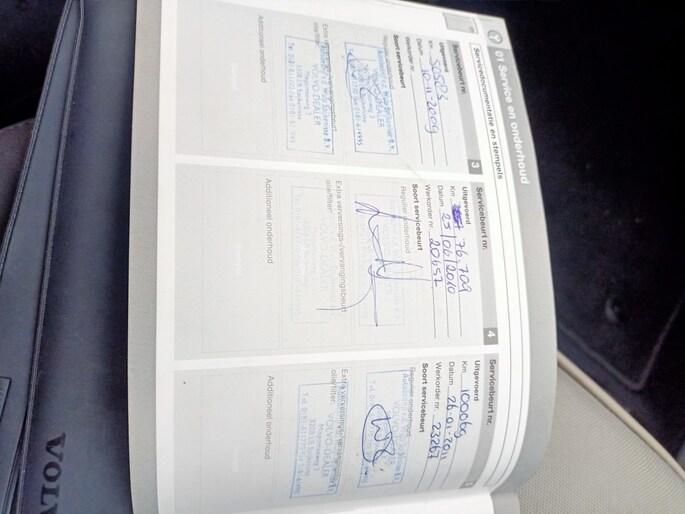 01 Service en onderhoud
Servicedocumentatie en stempels
Servicebeurt nr. 3
Uitgevoerd
Km 50503
Datum 10-11-2009
Werkorder nr.
Soort servicebeurt
Regulier onderhoud
VOLVO-DEALER
Extra verversings-/vervangingsbeurt
olie/filter:
VOLVO-DEALER
Additioneel onderhoud
Servicebeurt nr. 4
Uitgevoerd
Km 76.709
Datum 25/06/2010
Werkorder nr. 20657
Soort servicebeurt
Regulier onderhoud
Extra verversings-/vervangingsbeurt
olie/filter:
Additioneel onderhoud
Servicebeurt nr.
Uitgevoerd
Km 100069
Datum 26-01-2011
Werkorder nr. 23267
Soort servicebeurt
Regulier onderhoud
VOLVO-DEALER
Extra verversings-/vervangingsbeurt
olie/filter:
VOLVO-DEALER
Additioneel onderhoud
VOLV